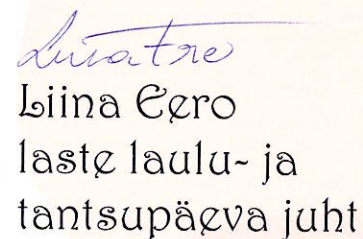 Liina Eero
laste laulu- ja
tantsupäeva juht